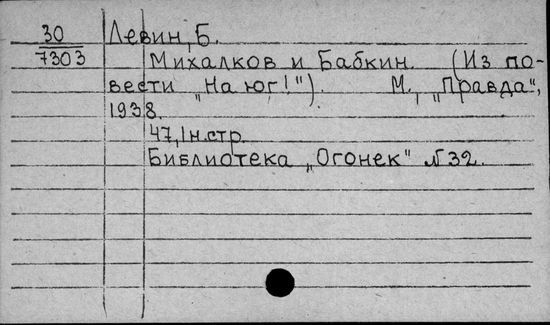 30 Левин, Б.
7303 Михалков и Бабкин. (Из по-
вести „На юг!"). М., „Правда",
1938.
47,1н.стр.
Библиотека „Огонек" №32.